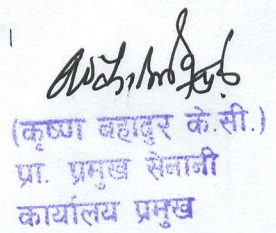 (कृष्ण बहादुर के.सी.)
प्रा. प्रमुख सेनानी
कार्यालय प्रमुख